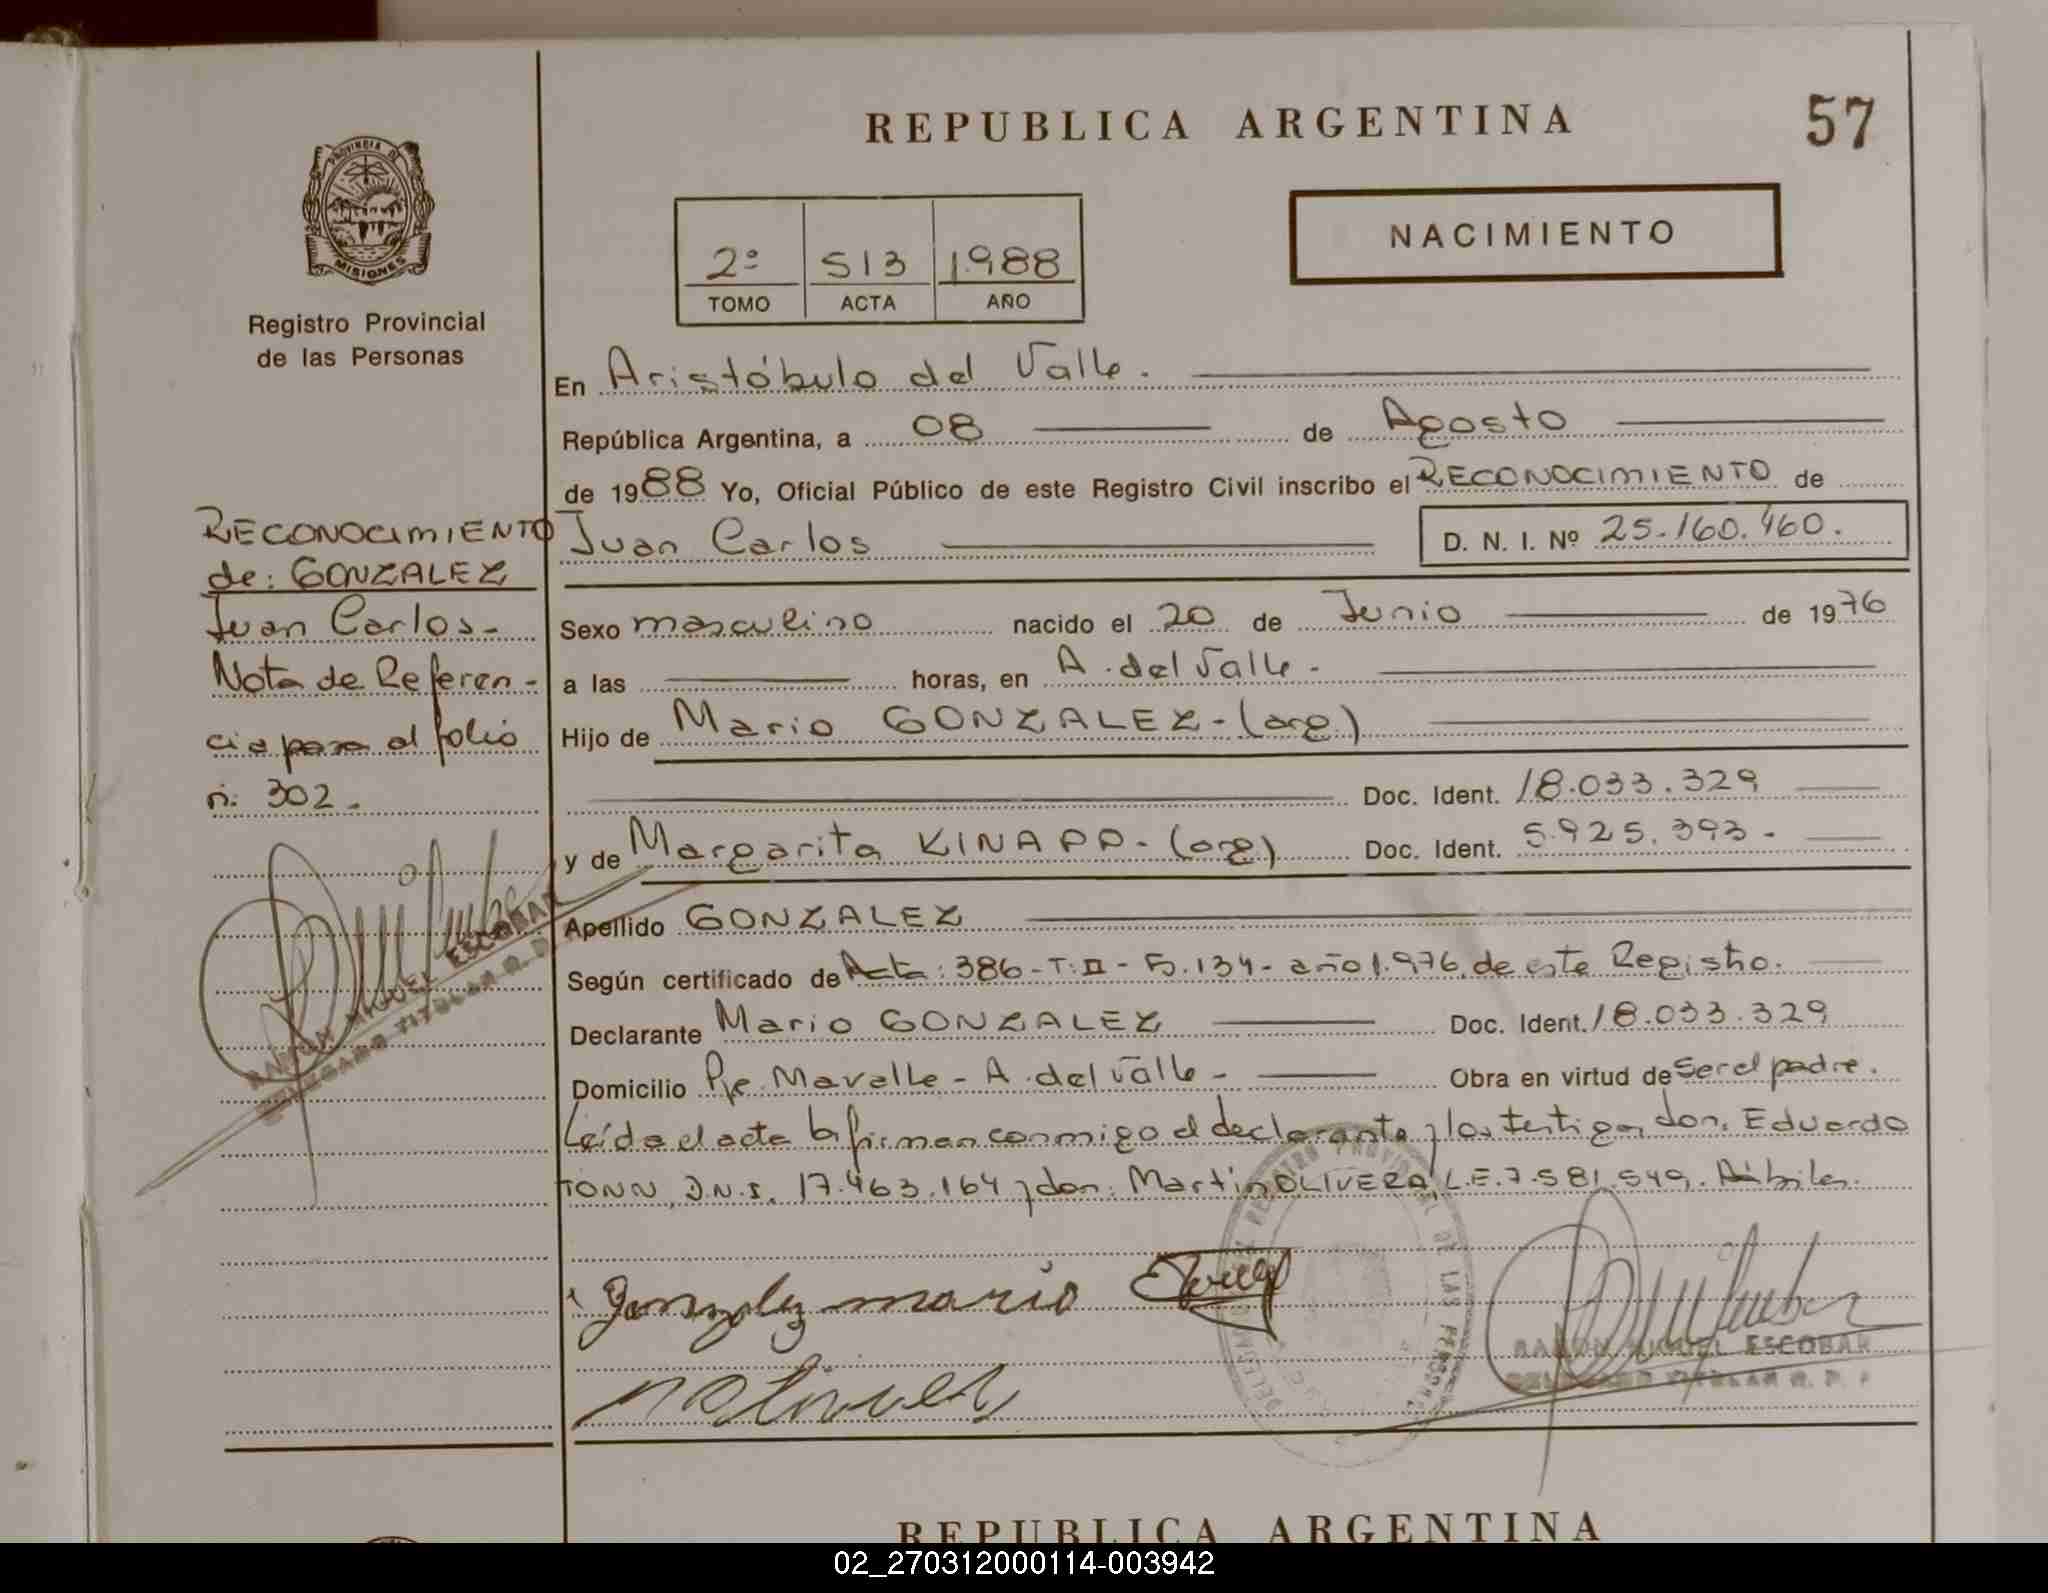 REPUBLICA ARGENTINA
57
PROVINCIA DE
MISIONES
Registro Provincial
de las Personas
2º 513 1.988
TOMO ACTA AÑO
NACIMIENTO
En Aristóbulo del Valle.
República Argentina, a 08 de Agosto
de 1988 Yo, Oficial Público de este Registro Civil inscribo el RECONOCIMIENTO de
Juan Carlos D. N. I. Nº 25.160.460.
Sexo masculino nacido el 20 de Junio de 1976
a las horas, en A. del Valle.
Hijo de Mario GONZALEZ-(arg)
Doc. Ident. 18.033.329
y de Margarita KINAPP-(arg) Doc. Ident. 5.925.393-
Apellido GONZALEZ
Según certificado de Acta: 386-T:II-F.134- año 1.976, de este Registro.
Declarante Mario GONZALEZ Doc. Ident. 18.033.329
Domicilio Pje. Mavalle - A. del Valle - Obra en virtud de ser el padre.
Leída el acta la firman conmigo el declarante y los testigos don: Eduardo
TONN, D.N.I. 17.463.164 y don: Martin OLIVERA, L.E. 7.581.549. Hábiles.
Gonzalez mario
RAMON MIGUEL ESCOBAR
DELEGADO TITULAR R. P. P
RECONOCIMIENTO
de: GONZALEZ
Juan Carlos-
Nota de Referen-
cia pasa al folio
n: 302-
RAMON MIGUEL ESCOBAR
DELEGADO TITULAR R. P.
REPUBLICA ARGENTINA
02_270312000114-003942